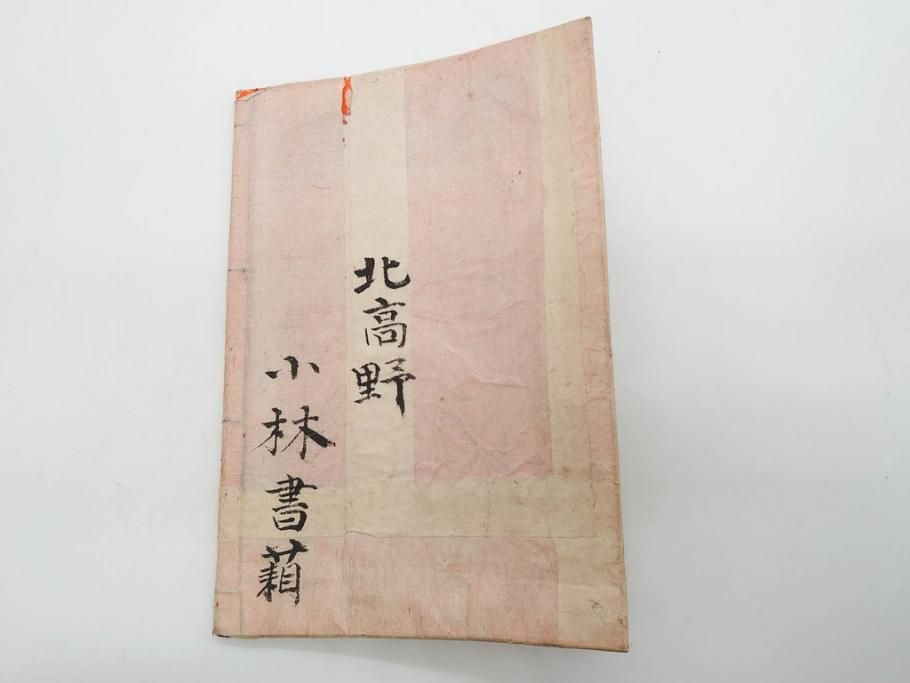 北高野
小林書藉